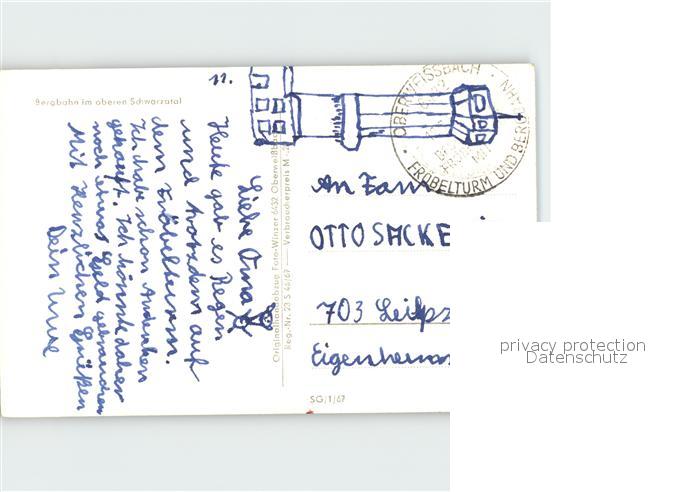 Bergbahn im oberen Schwarzatal
11.
Liebe Oma
Heute gab es Regen
und trotzdem auf
dem Fröbelturm.
Ich habe schon Andenken
gekauft. Ich könnte daher
noch etwas Geld gebrauchen
Mit Herzlichen Grüßen
Dein Uwe
Originalhandabzug Foto-Winzer 6432 Oberweißbach
Reg.-Nr. 23 S 46/67 — Verbraucherpreis M
OBERWEISSBACH
FRÖBELTURM UND BERG
An Fam
OTTO SACKE
703 Leipz
Eigenheims
SG/1/67
privacy protection
Datenschutz